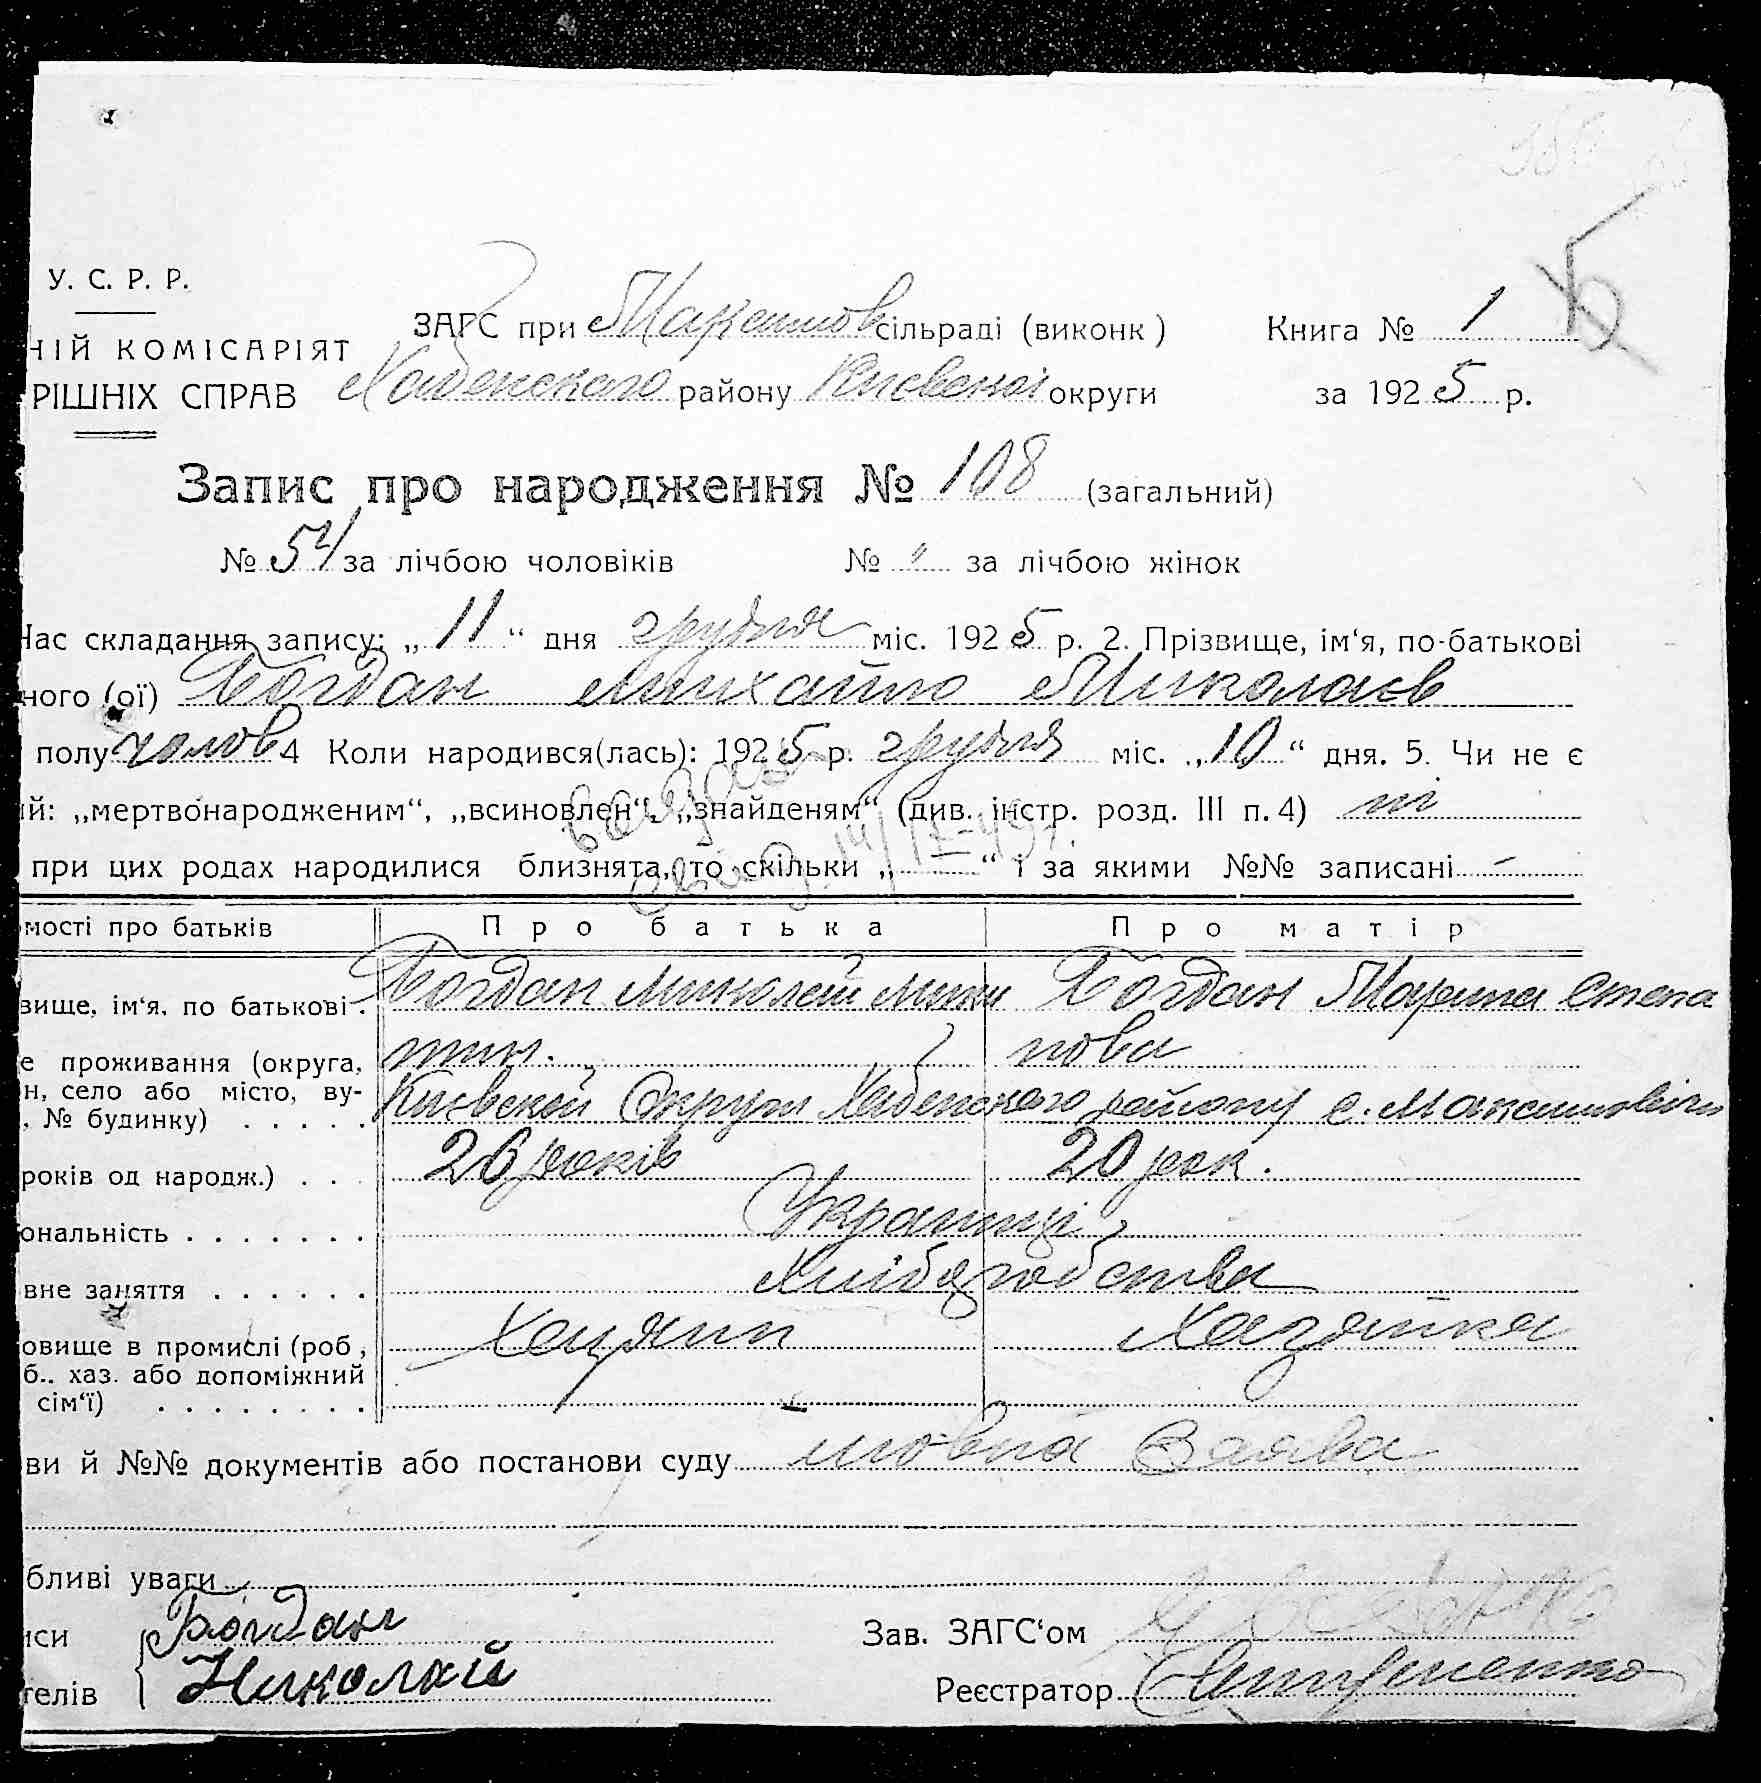 У. С. Р. Р.
ЗАГС при Максимов сільраді (виконк) Книга № 1
НІЙ КОМІСАРІЯТ
РІШНІХ СПРАВ Хабенского району Киевской округи за 1925 р.
Запис про народження № 108 (загальний)
№ 54 за лічбою чоловіків № " за лічбою жінок
Час складання запису: „11“ дня грудня міс. 1925 р. 2. Прізвище, ім‘я, по-батькові
ного (ої) Богдан Михайло Миколаєв
полу чолов 4 Коли народився(лась): 1925 р. грудня міс. „10“ дня. 5. Чи не є
ий: „мертвонародженим“, „всиновлен“, „знайденям“ (див. інстр. розд. III п. 4) ні
при цих родах народилися близнята, то скільки „ “ і за якими №№ записані –
мості про батьків Про батька Про матір
вище, ім‘я, по батькові. Богдан Миколай Мики Богдан Марина Степа
тин. нова
е проживання (округа,
н, село або місто, ву-
, № будинку) . . . . . Киевской Округи Хабенского району с. Максимовичи
років од народж.) . . . 26 років 20 рок.
ональність . . . . . . . Українці
вне заняття . . . . . . Хліборобства
овище в промислі (роб, Хазяин Хазяйка
б.. хаз. або допоміжний
сім‘ї) . . . . . . . .
ви й №№ документів або постанови суду мовна Заява
бливі уваги
иси Богдан Зав. ЗАГС‘ом
телів Николай Реєстратор